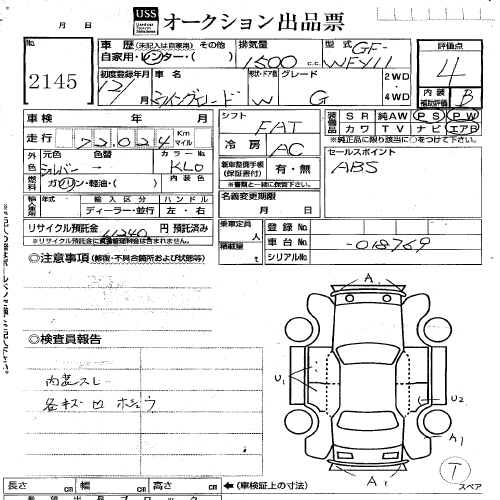 USS オークション出品票
月 日
No. 車歴 (未記入は自家用) その他 排気量 型式 GF- 評価点
自家用・レンター・( ) 1500 c.c. WFY11 4
2145 初度登録年月 車名 形状・ドア数 グレード 2WD 内装
12/ W G 4WD 補助評価 B
車検 年 月 シフト 装備品 SR 純AW PS PW
FAT カワ TV ナビ エアB
走行 72,024 Km マイル ※純正品に限り該当に○をつけて下さい。
冷房 AC セールスポイント
外色 元色 色替 カラーNo. ABS
シルバー → KL0 新車整備手帳(保証書付) 有・無
燃料 ガソリン・軽油・( ) 内装色 ※書類と一緒に保管下さい。
年式 輸入区分 ハンドル 名義変更期限
ディーラー・並行 左・右 月 日
リサイクル預託金 円 預託済み 乗車定員 人 登録No
※リサイクル預託金に資金管理料金は含まれません。 積載量 t 車台No -018769
シリアルNo
◎注意事項 (修復・不具合箇所および状態等)
A1
◎検査員報告
内装スレ U1 U2
各キズ凹 ホシュウ
A1
A1 T
長さ cm 幅 cm 高さ cm ←(車検証上の寸法) スペア